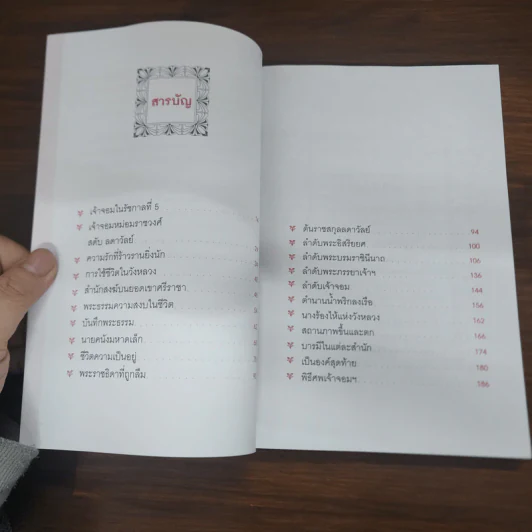 สารบัญ
เจ้าจอมในรัชกาลที่ 5
เจ้าจอมหม่อมราชวงศ์
สดับ ลดาวัลย์
ความรักที่ร้าวรานยิ่งนัก
การใช้ชีวิตในวังหลวง
สำนักสงฆ์บนยอดเขาศรีราชา
พระธรรมความสงบในชีวิต
บันทึกพระธรรม
นายคนังมหาดเล็ก
ชีวิตความเป็นอยู่
พระราชธิดาที่ถูกลืม
ต้นราชสกุลลดาวัลย์ 94
ลำดับพระอิสริยยศ 100
ลำดับพระบรมราชินีนาถ 106
ลำดับพระภรรยาเจ้าฯ 136
ลำดับเจ้าจอม 144
ตำนานน้ำพริกลงเรือ 156
นางร้องไห้แห่งวังหลวง 162
สถานภาพขึ้นและตก 166
บารมีในแต่ละสำนัก 174
เป็นองค์สุดท้าย 180
พิธีศพเจ้าจอมฯ 186